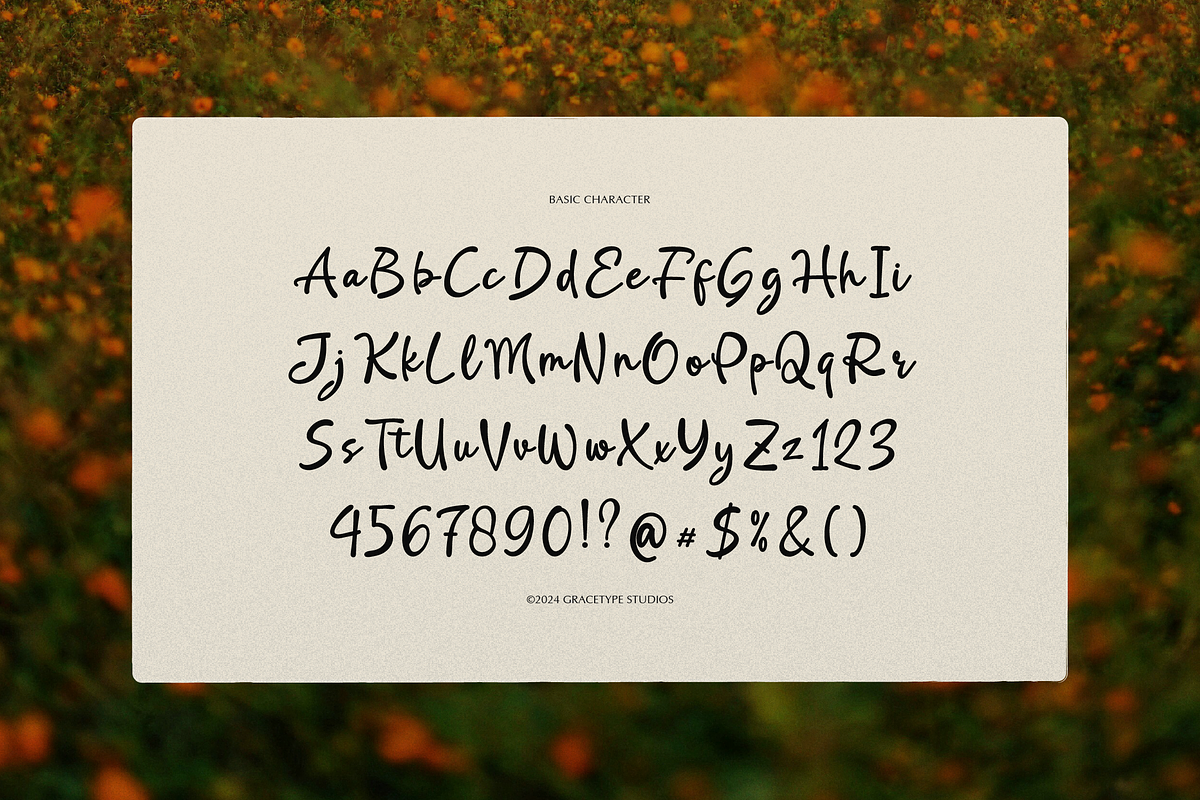 BASIC CHARACTER
AaBbCcDdEeFfGgHhIi
JjKkLlMmNnOoPpQqRr
SsTtUuVvWwXxYyZz123
4567890!?@#$%&()
©2024 GRACETYPE STUDIOS